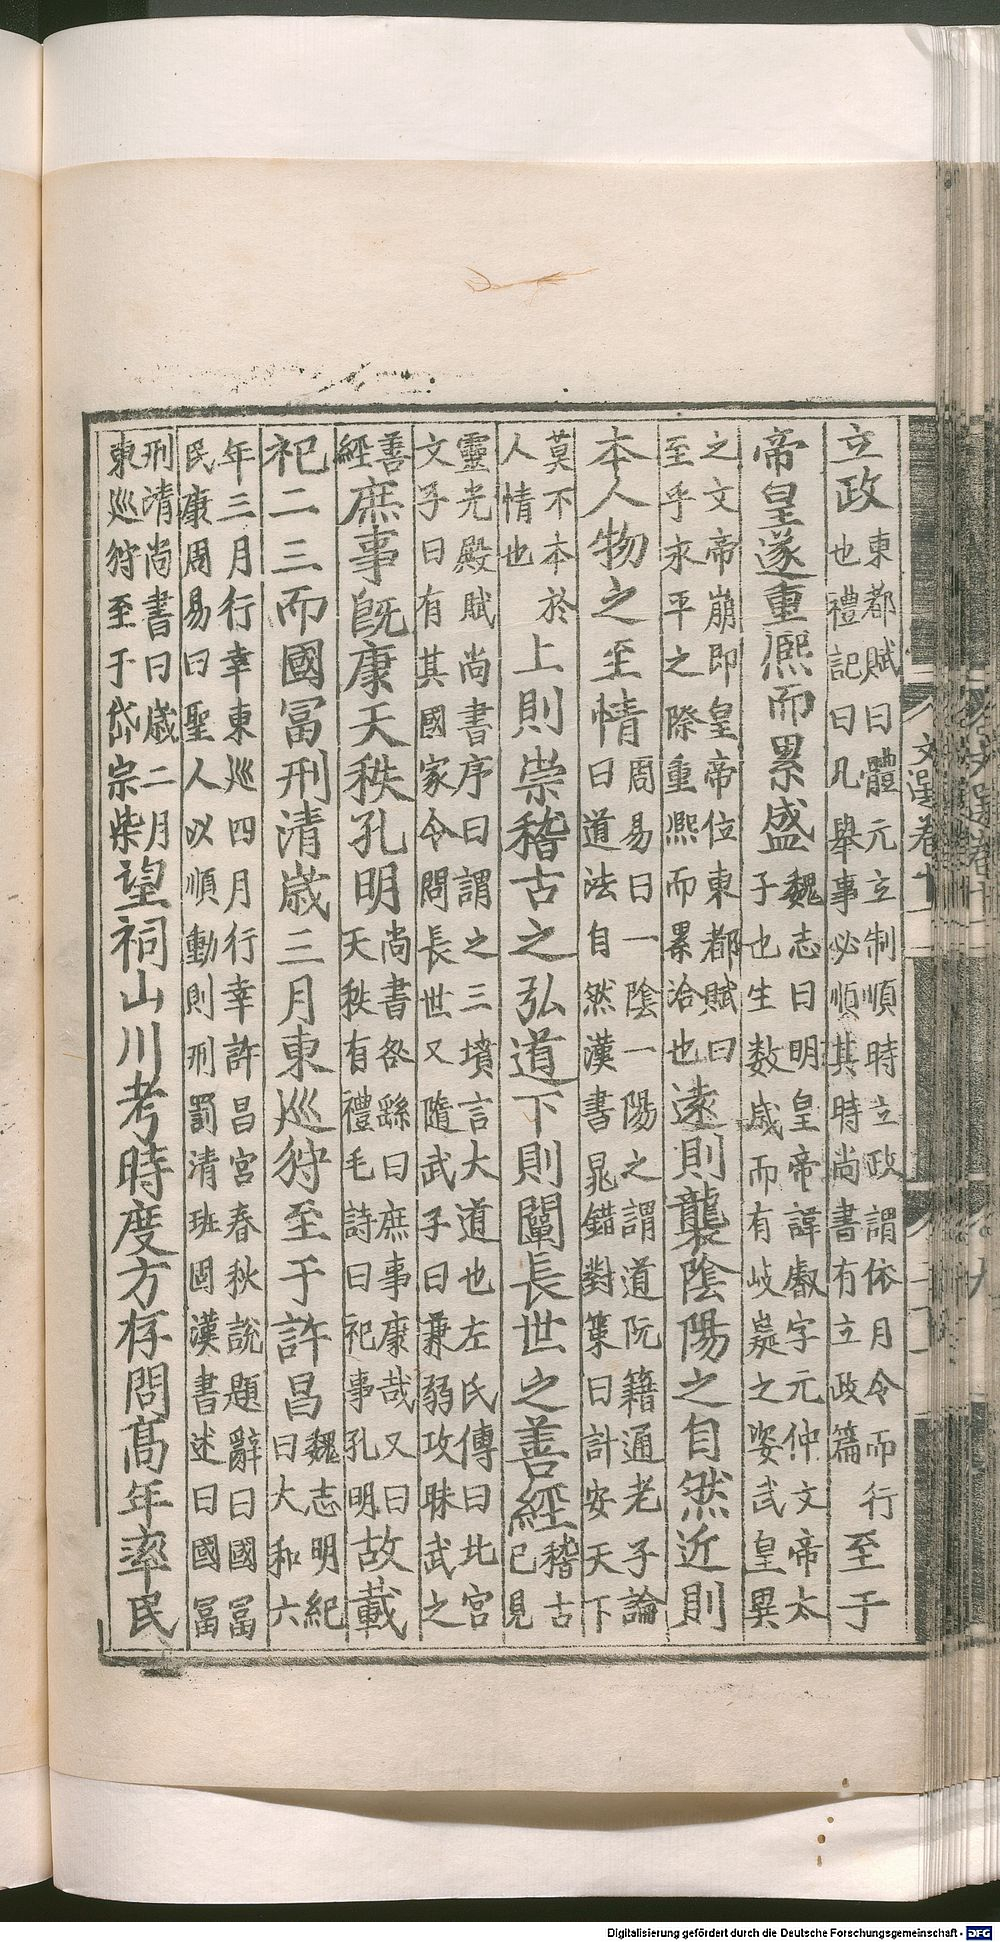 立政東都賦曰體元立制順時立政謂依月令而行
也禮記曰凡舉事必順其時尚書有立政篇至于
帝皇遂重熈而累盛魏志曰明皇帝諱叡字元仲文帝太
子也生数歲而有岐嶷之姿武皇異
之文帝崩即皇帝位東都賦曰
至乎永平之際重熈而累洽也遠則襲陰陽之自然近則
本人物之至情周易曰一陰一陽之謂道阮籍通老子論
曰道法自然漢書晁錯對策曰計安天下
莫不本於
人情也上則崇稽古之弘道下則闡長世之善經稽古
已見
靈光殿賦尚書序曰謂之三墳言大道也左氏傳曰北宫
文子曰有其國家令問長世又隨武子曰兼弱攻昧武之
善
經庶事旣康天秩孔明尚書咎繇曰庶事康哉又曰
天秩有禮毛詩曰祀事孔明故載
祀二三而國冨刑清歲三月東巡狩至于許昌魏志明紀
曰大和六
年三月行幸東巡四月行幸許昌宮春秋說題辭曰國冨
民康周易曰聖人以順動則刑罰清班固漢書述曰國冨
刑清尚書曰歲二月
東巡狩至于岱宗柴望祠山川考時度方存問髙年率民
文選卷十一